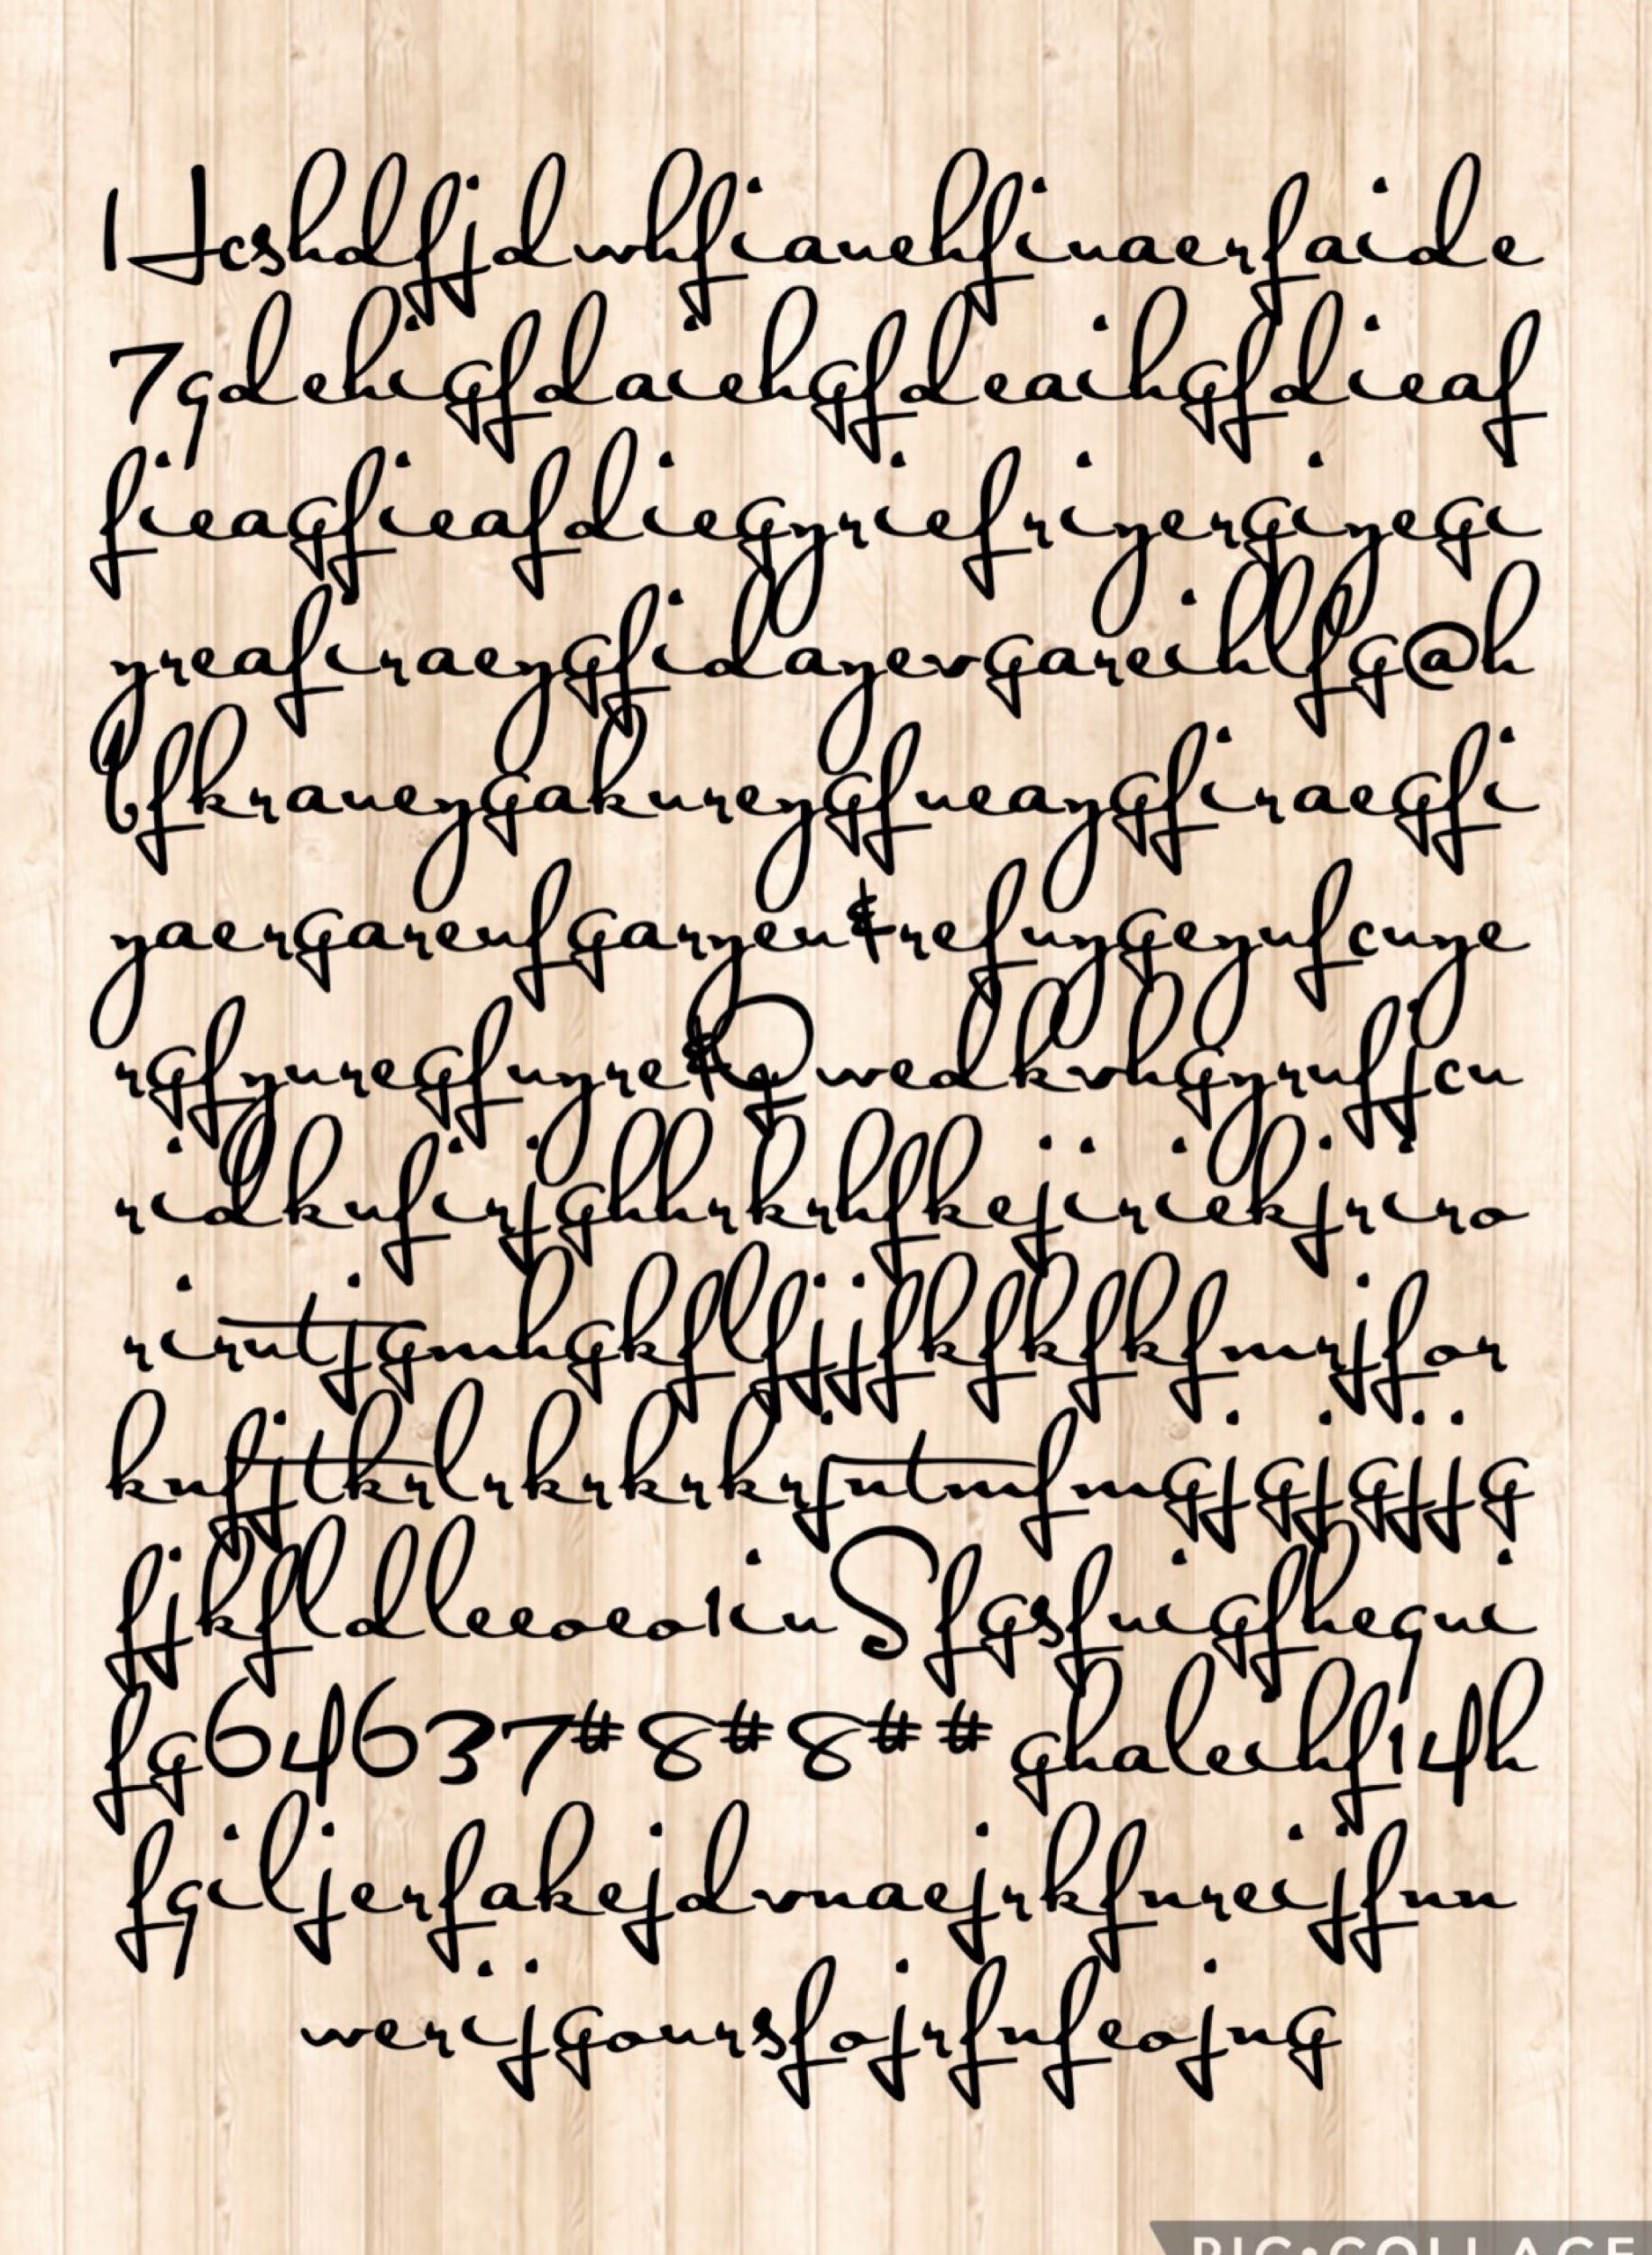 1Hcshdfjdwhfianehfinaerfaide
7qdehigfdaiehgfdeaihgfdieaf
fieagfieafdiegyriefriyergiyegi
yreafiraeygfidayevgareihlfg@h
bfkraueygakureygfueaygfiraegfi
yaergareufgaryeu&refuygeyufcuye
rgfyuregfuyre&Qwedkvhgyrufjcu
ridkufirjghhrkrhfkejiriekjriro
irutjgmhgkflfjjfkfkfkfmrjfor
kufjtkrlrkrkrkrjutmfmgjgjgjjg
fjkfldleeoeo1iuSfgsfuigfhequi
fg64637#8#8## ghaleihf14h
fqiljerfakejdvnaejrkfnreijfnu
werijgoursfojrfnfeojng
PIC•COLLAGE